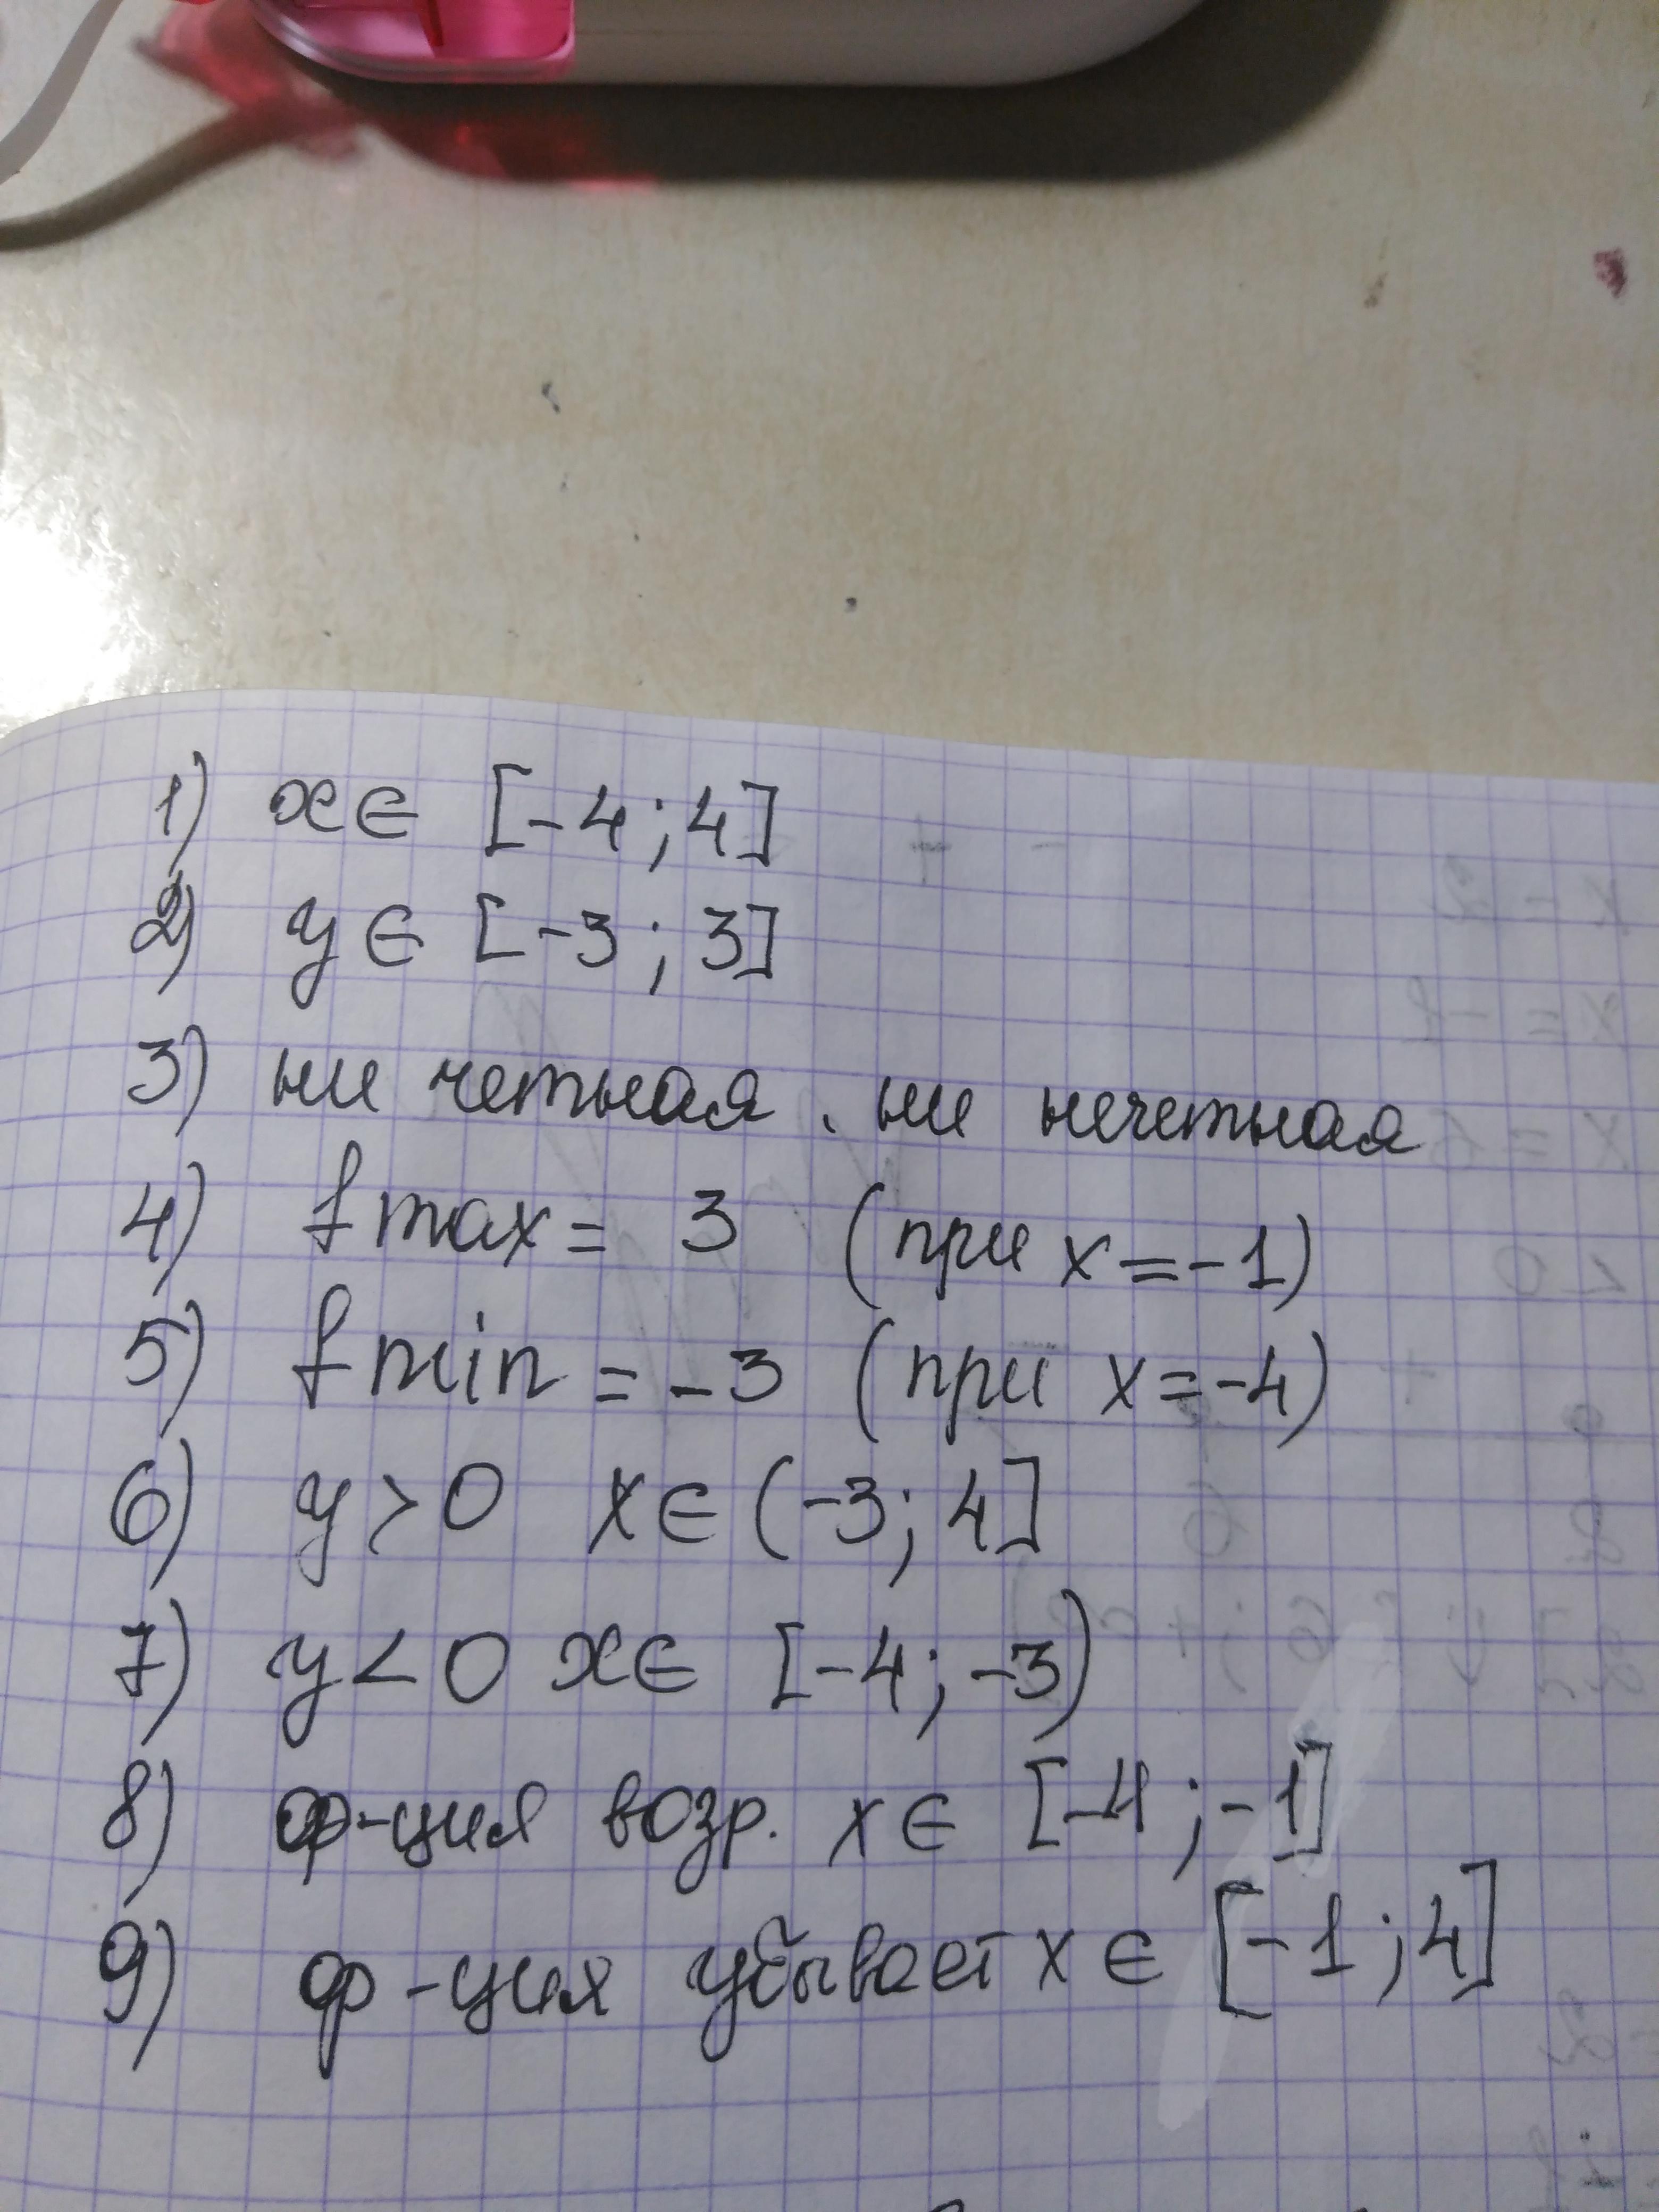 1) x ∈ [-4; 4]
2) y ∈ [-3; 3]
3) ни четная, ни нечетная
4) f max = 3 (при x = -1)
5) f min = -3 (при x = -4)
6) y > 0 x ∈ (-3; 4]
7) y < 0 x ∈ [-4; -3)
8) ф-ция возр. x ∈ [-4; -1]
9) ф-ция убывает x ∈ [-1; 4]